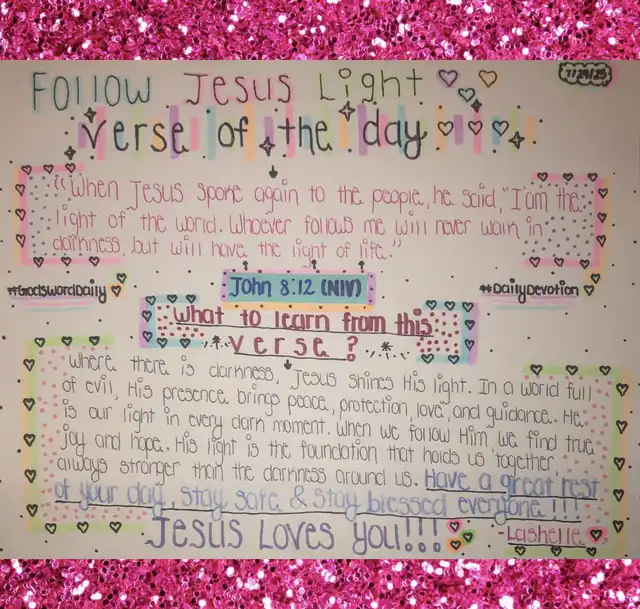 Follow Jesus Light
7/29/25
verse of the day
"When Jesus spoke again to the people, he said, "I am the
light of the world. Whoever follows me will never walk in
darkness, but will have the light of life."
John 8:12 (NIV)
#GodsWordDaily
#DailyDevotion
What to learn from this
verse?
Where there is darkness, Jesus shines His light. In a world full
of evil, His presence brings peace, protection, love, and guidance. He
is our light in every dark moment. When we follow Him we find true
joy and hope. His light is the foundation that holds us together,
always stronger than the darkness around us. Have a great rest
of your day, stay safe & stay blessed everyone!!!
Jesus Loves You!!!
-Lashelle